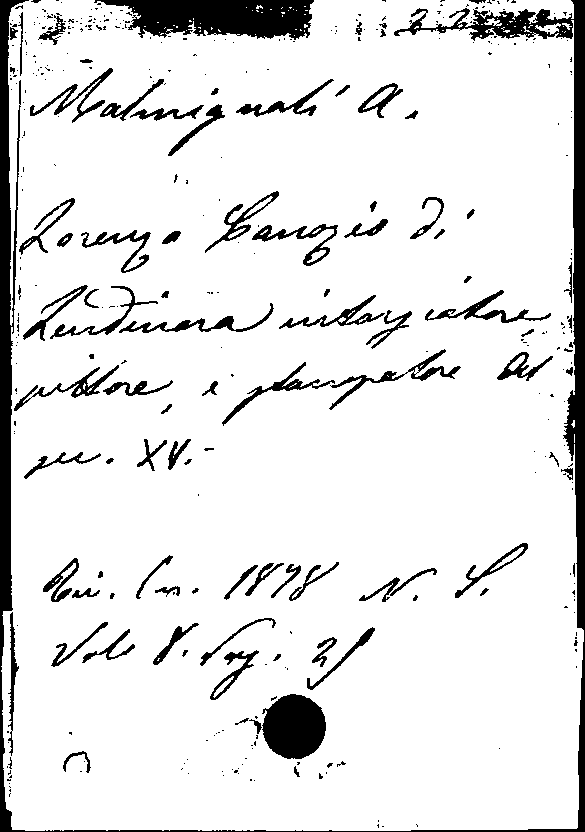 22
Malmignati A.
Lorenzo Canozio di
Lendinara intarsiatore,
pittore, e stampatore del
sec. XV.-
Riv. Eur. 1878 N. S.
Vol. 8. Pag. 25